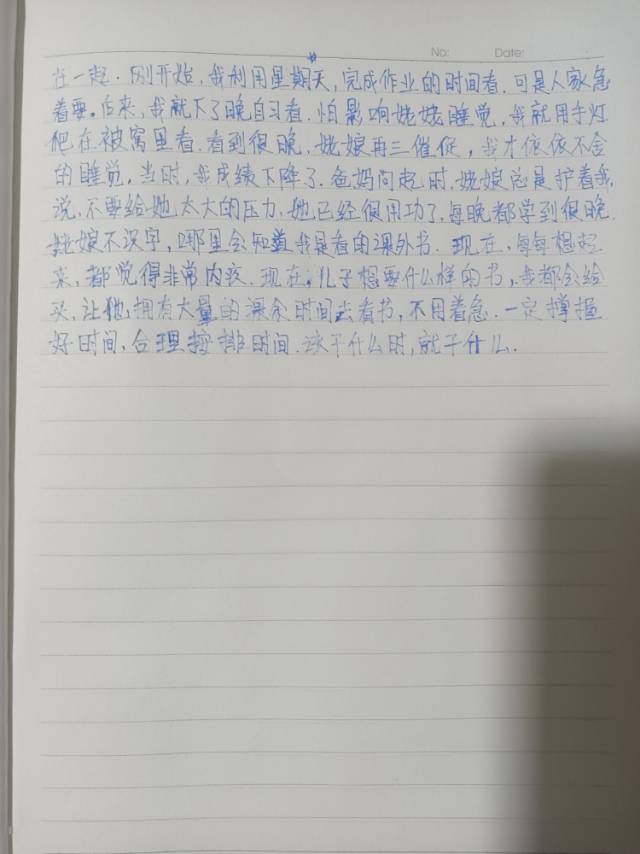 No: Date:
在一起. 刚开始, 我利用星期天, 完成作业的时间看, 可是人家急
着要. 后来, 我就下了晚自习看, 怕影响姥姥睡觉, 我就用手灯
爬在被窝里看, 看到很晚, 姥娘再三催促, 我才依依不舍
的睡觉, 当时, 我成绩下降了, 爸妈问起时, 姥娘总是护着我,
说, 不要给她太大的压力, 她已经很用功了, 每晚都学到很晚.
姥娘不识字, 哪里会知道我是看的课外书. 现在, 每每想起
来, 都觉得非常内疚. 现在, 儿子想要什么样的书, 我都会给
买, 让他, 拥有大量的课余时间去看书, 不用着急. 一定
好时间, 合理按排时间. 该干什么时, 就干什么.